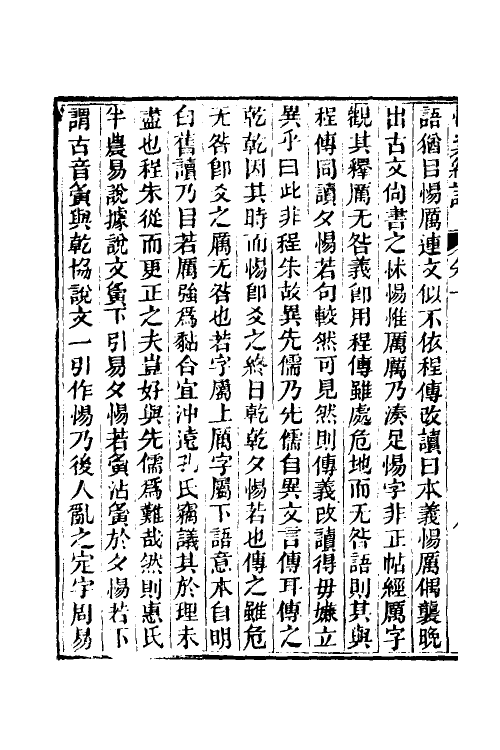 語猶目惕厲連文似不依程傳改讀曰本義惕厲偶襲晚
出古文尙書之怵惕惟厲厲乃湊足惕字非正帖經厲字
觀其釋厲无咎義卽用程傳雖處危地而无咎語則其與
程傳同讀夕惕若句較然可見然則傳義改讀得毋嫌立
異乎曰此非程朱故異先儒乃先儒自異文言傳耳傳之
乾乾因其時而惕卽爻之終日乾乾夕惕若也傳之雖危
无咎卽爻之厲无咎也若字屬上厲字屬下語意本自明
白舊讀乃目若厲強爲黏合宜沖遠孔氏竊議其於理未
盡也程朱從而更正之夫豈好與先儒爲難哉然則惠氏
半農易說據說文夤下引易夕惕若夤沾夤於夕惕若下
謂古音夤與乾協說文一引作惕乃後人亂之定宇周易